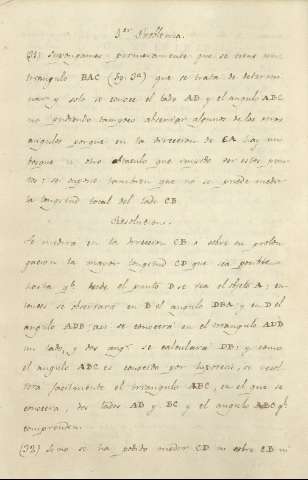 3er Problema.
(31) Supongamos primeramente que se tiene un
triangulo BAC (fig. 32) que se trata de determi-
nar y solo se conoce el lado AB y el angulo ABC
no pudiendo tampoco observar algunos de los otros
angulos porque en la direccion de CA hay un
bosque u otro obstaculo que impide ver estos pun-
tos; y que tambien que no se puede medir
la longitud total del lado CB.
Resolucion.
Se medirá en la direccion CB ó sobre su prolon-
gacion la mayor longitud CD que sea posible
hasta qe. desde el punto D se vea el objeto A; en-
tonces se observará en B el angulo DBA y en D el
angulo ADB: asi se conocerá en el triangulo ADB
un lado, y dos angs. se calculará DB; y como
el angulo ABC es conocido por hipotesis, se resol-
verá facilmente el triangulo ABC, en el que se
conocera, dos lados AB y BC y el angulo ABC qe.
comprenden.
(32) Si no se ha podido medir CD ni sobre CB ni